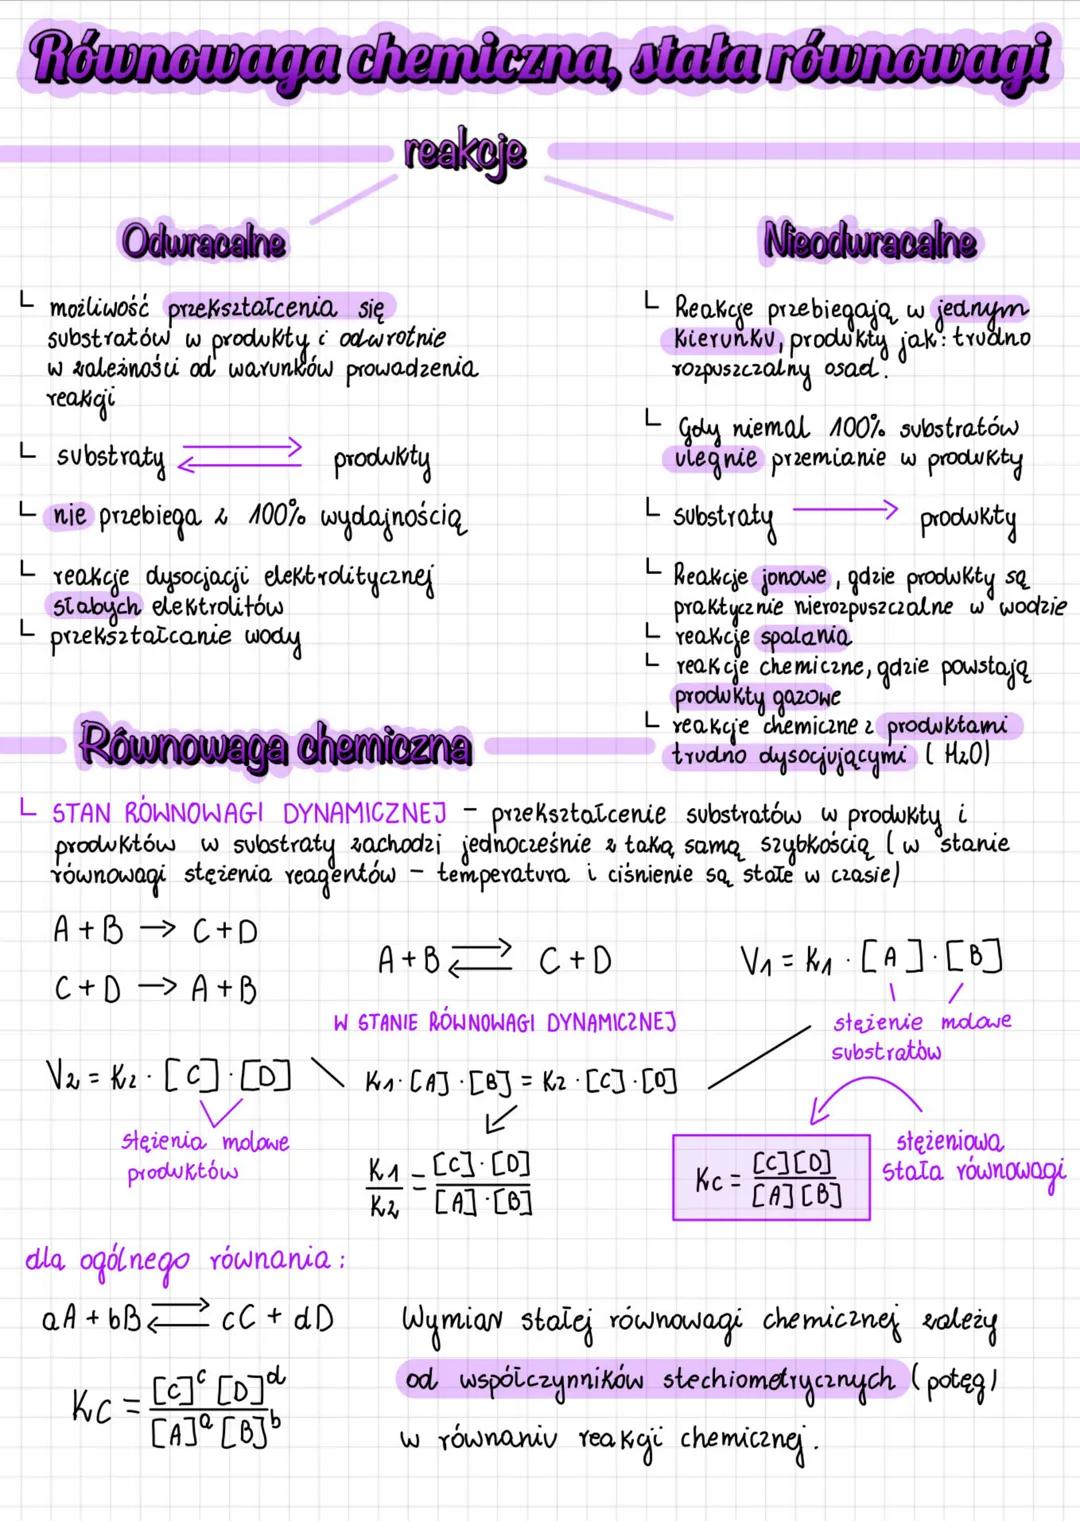 Równowaga chemiczna, stała równowagi
reakcje
Odwracalne
└ możliwość przekształcenia się
substratów w produkty i odwrotnie
w zależności od warunków prowadzenia
reakcji
└ substraty ⇄ produkty
└ nie przebiega z 100% wydajnością
└ reakcje dysocjacji elektrolitycznej
słabych elektrolitów
└ przekształcanie wody
Nieodwracalne
└ Reakcje przebiegają w jednym
kierunku, produkty jak: trudno
rozpuszczalny osad.
└ Gdy niemal 100% substratów
ulegnie przemianie w produkty
└ substraty → produkty
└ Reakcje jonowe, gdzie produkty są
praktycznie nierozpuszczalne w wodzie
└ reakcje spalania
└ reakcje chemiczne, gdzie powstają
produkty gazowe
└ reakcje chemiczne z produktami
trudno dysocjującymi (H₂O)
Równowaga chemiczna
└ STAN RÓWNOWAGI DYNAMICZNEJ – przekształcenie substratów w produkty i
produktów w substraty zachodzi jednocześnie z taką samą szybkością (w stanie
równowagi stężenia reagentów – temperatura i ciśnienie są stałe w czasie)
A + B → C + D
C + D → A + B
A + B ⇄ C + D
V₁ = K₁ · [A] · [B]
stężenie molowe
substratów
W STANIE RÓWNOWAGI DYNAMICZNEJ
V₂ = K₂ · [C] · [D]
stężenia molowe
produktów
K₁ · [A] · [B] = K₂ · [C] · [D]
K₁/K₂ = [C] · [D] / [A] · [B]
Kc = [C][D] / [A][B]
stężeniowa
stała równowagi
dla ogólnego równania:
aA + bB ⇄ cC + dD
Kc = [C]ᶜ [D]ᵈ / [A]ᵃ [B]ᵇ
Wymiar stałej równowagi chemicznej zależy
od współczynników stechiometrycznych (potęg)
w równaniu reakcji chemicznej.